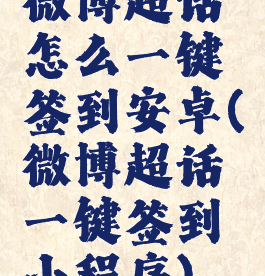 微博超话
怎么一键
签到安卓(
微博超话
一键签到
小程序)